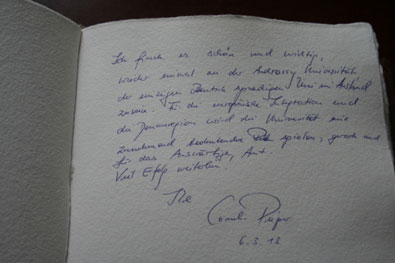 Ich finde es schön und wichtig,
wieder einmal an der Andrassy Universität
der einzigen Deutsch sprachigen Uni im Ausland
zu sein. Für die europäische Integration und
die Donauregion wird die Universität eine
zunehmend bedeutendere spielen, gerade auch
für das Auswärtige Amt.
Viel Erfolg weiterhin!
Ihre
Cornelia Pieper
6.3.13